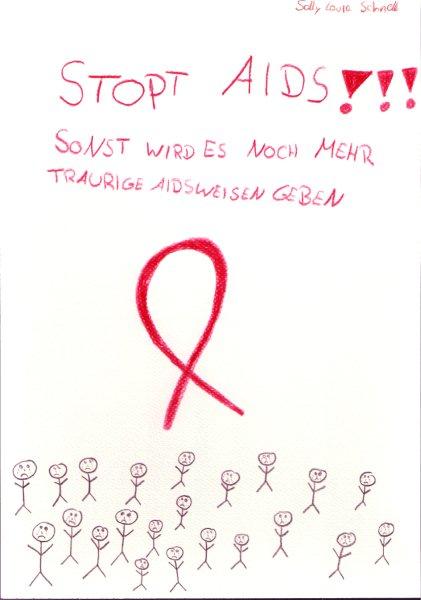 Sally Laura Schnell
STOPT AIDS!!!
SONST WIRD ES NOCH MEHR
TRAURIGE AIDSWEISEN GEBEN